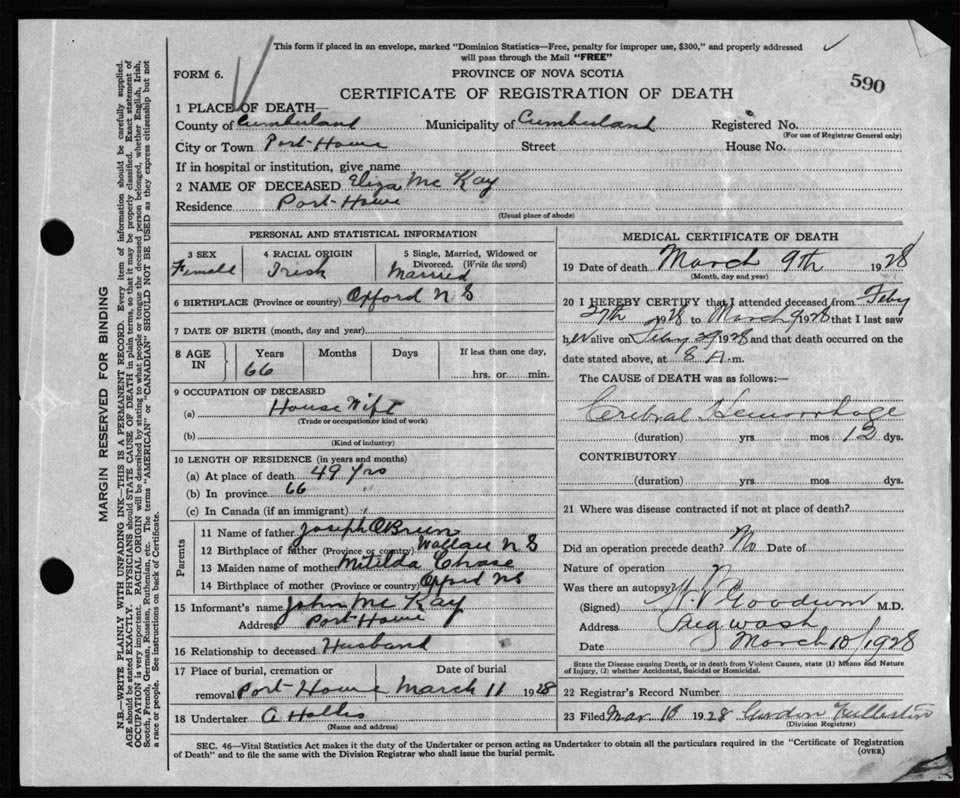 This form if placed in an envelope, marked "Dominion Statistics—Free, penalty for improper use, $300," and properly addressed
will pass through the Mail "FREE"
FORM 6.
PROVINCE OF NOVA SCOTIA
590
CERTIFICATE OF REGISTRATION OF DEATH
1 PLACE OF DEATH—
County of Cumberland Municipality of Cumberland Registered No.
(For use of Registrar General only)
City or Town Port-Howe Street House No.
If in hospital or institution, give name
2 NAME OF DECEASED Eliza Mc Kay
Residence Port-Howe
(Usual place of abode)
PERSONAL AND STATISTICAL INFORMATION
3 SEX 4 RACIAL ORIGIN 5 Single, Married, Widowed or
Divorced. (Write the word)
Female Irish Married
6 BIRTHPLACE (Province or country) Oxford N S
7 DATE OF BIRTH (month, day and year)
8 AGE IN Years Months Days If less than one day,
66 hrs. or min.
9 OCCUPATION OF DECEASED
(a) House Wife
(Trade or occupation or kind of work)
(b)
(Kind of industry)
10 LENGTH OF RESIDENCE (in years and months)
(a) At place of death 49 Yrs
(b) In province 66 "
(c) In Canada (if an immigrant)
Parents
11 Name of father Joseph OBrien
12 Birthplace of father (Province or country) Wallace N S
13 Maiden name of mother Mitilda Chase
14 Birthplace of mother (Province or country) Oxford NS
15 Informant's name John Mc Kay
Address Port-Howe
16 Relationship to deceased Husband
17 Place of burial, cremation or Date of burial
removal Port-Howe March 11 1928
18 Undertaker A Hollis
(Name and address)
MEDICAL CERTIFICATE OF DEATH
19 Date of death March 9th 1928
(Month, day and year)
20 I HEREBY CERTIFY that I attended deceased from Feby
27th 1928 to March 9 1928 that I last saw
her alive on Feby 29 1928 and that death occurred on the
date stated above, at 8 A.m.
The CAUSE of DEATH was as follows:—
Cerebral Hemorrhage
(duration) yrs. mos 12 dys.
CONTRIBUTORY
(duration) yrs. mos. dys.
21 Where was disease contracted if not at place of death?
Did an operation precede death? No Date of
Nature of operation
Was there an autopsy?
(Signed) Goodwin M.D.
Address Pugwash
Date March 10/1928
State the Disease causing Death, or in death from Violent Causes, state (1) Means and Nature
of Injury, (2) whether Accidental, Suicidal or Homicidal.
22 Registrar's Record Number
23 Filed Mar 10 1928 Gordon
(Division Registrar)
SEC. 46—Vital Statistics Act makes it the duty of the Undertaker or person acting as Undertaker to obtain all the particulars required in the "Certificate of Registration
of Death" and to file the same with the Division Registrar who shall issue the burial permit.
(OVER)
MARGIN RESERVED FOR BINDING
N.B.—WRITE PLAINLY WITH UNFADING INK—THIS IS A PERMANENT RECORD. Every item of information should be carefully supplied.
AGE should be stated EXACTLY. PHYSICIANS should STATE CAUSE OF DEATH in plain terms, so that it may be properly classified. Exact statement of
OCCUPATION is very important. RACIAL ORIGIN will be described by stating to what people or tongue the deceased person belonged, whether English, Irish,
Scotch, French, German, Russian, Ruthenian, etc. The terms "AMERICAN" or "CANADIAN" SHOULD NOT BE USED as they express citizenship but not
a race or people. See instructions on back of Certificate.